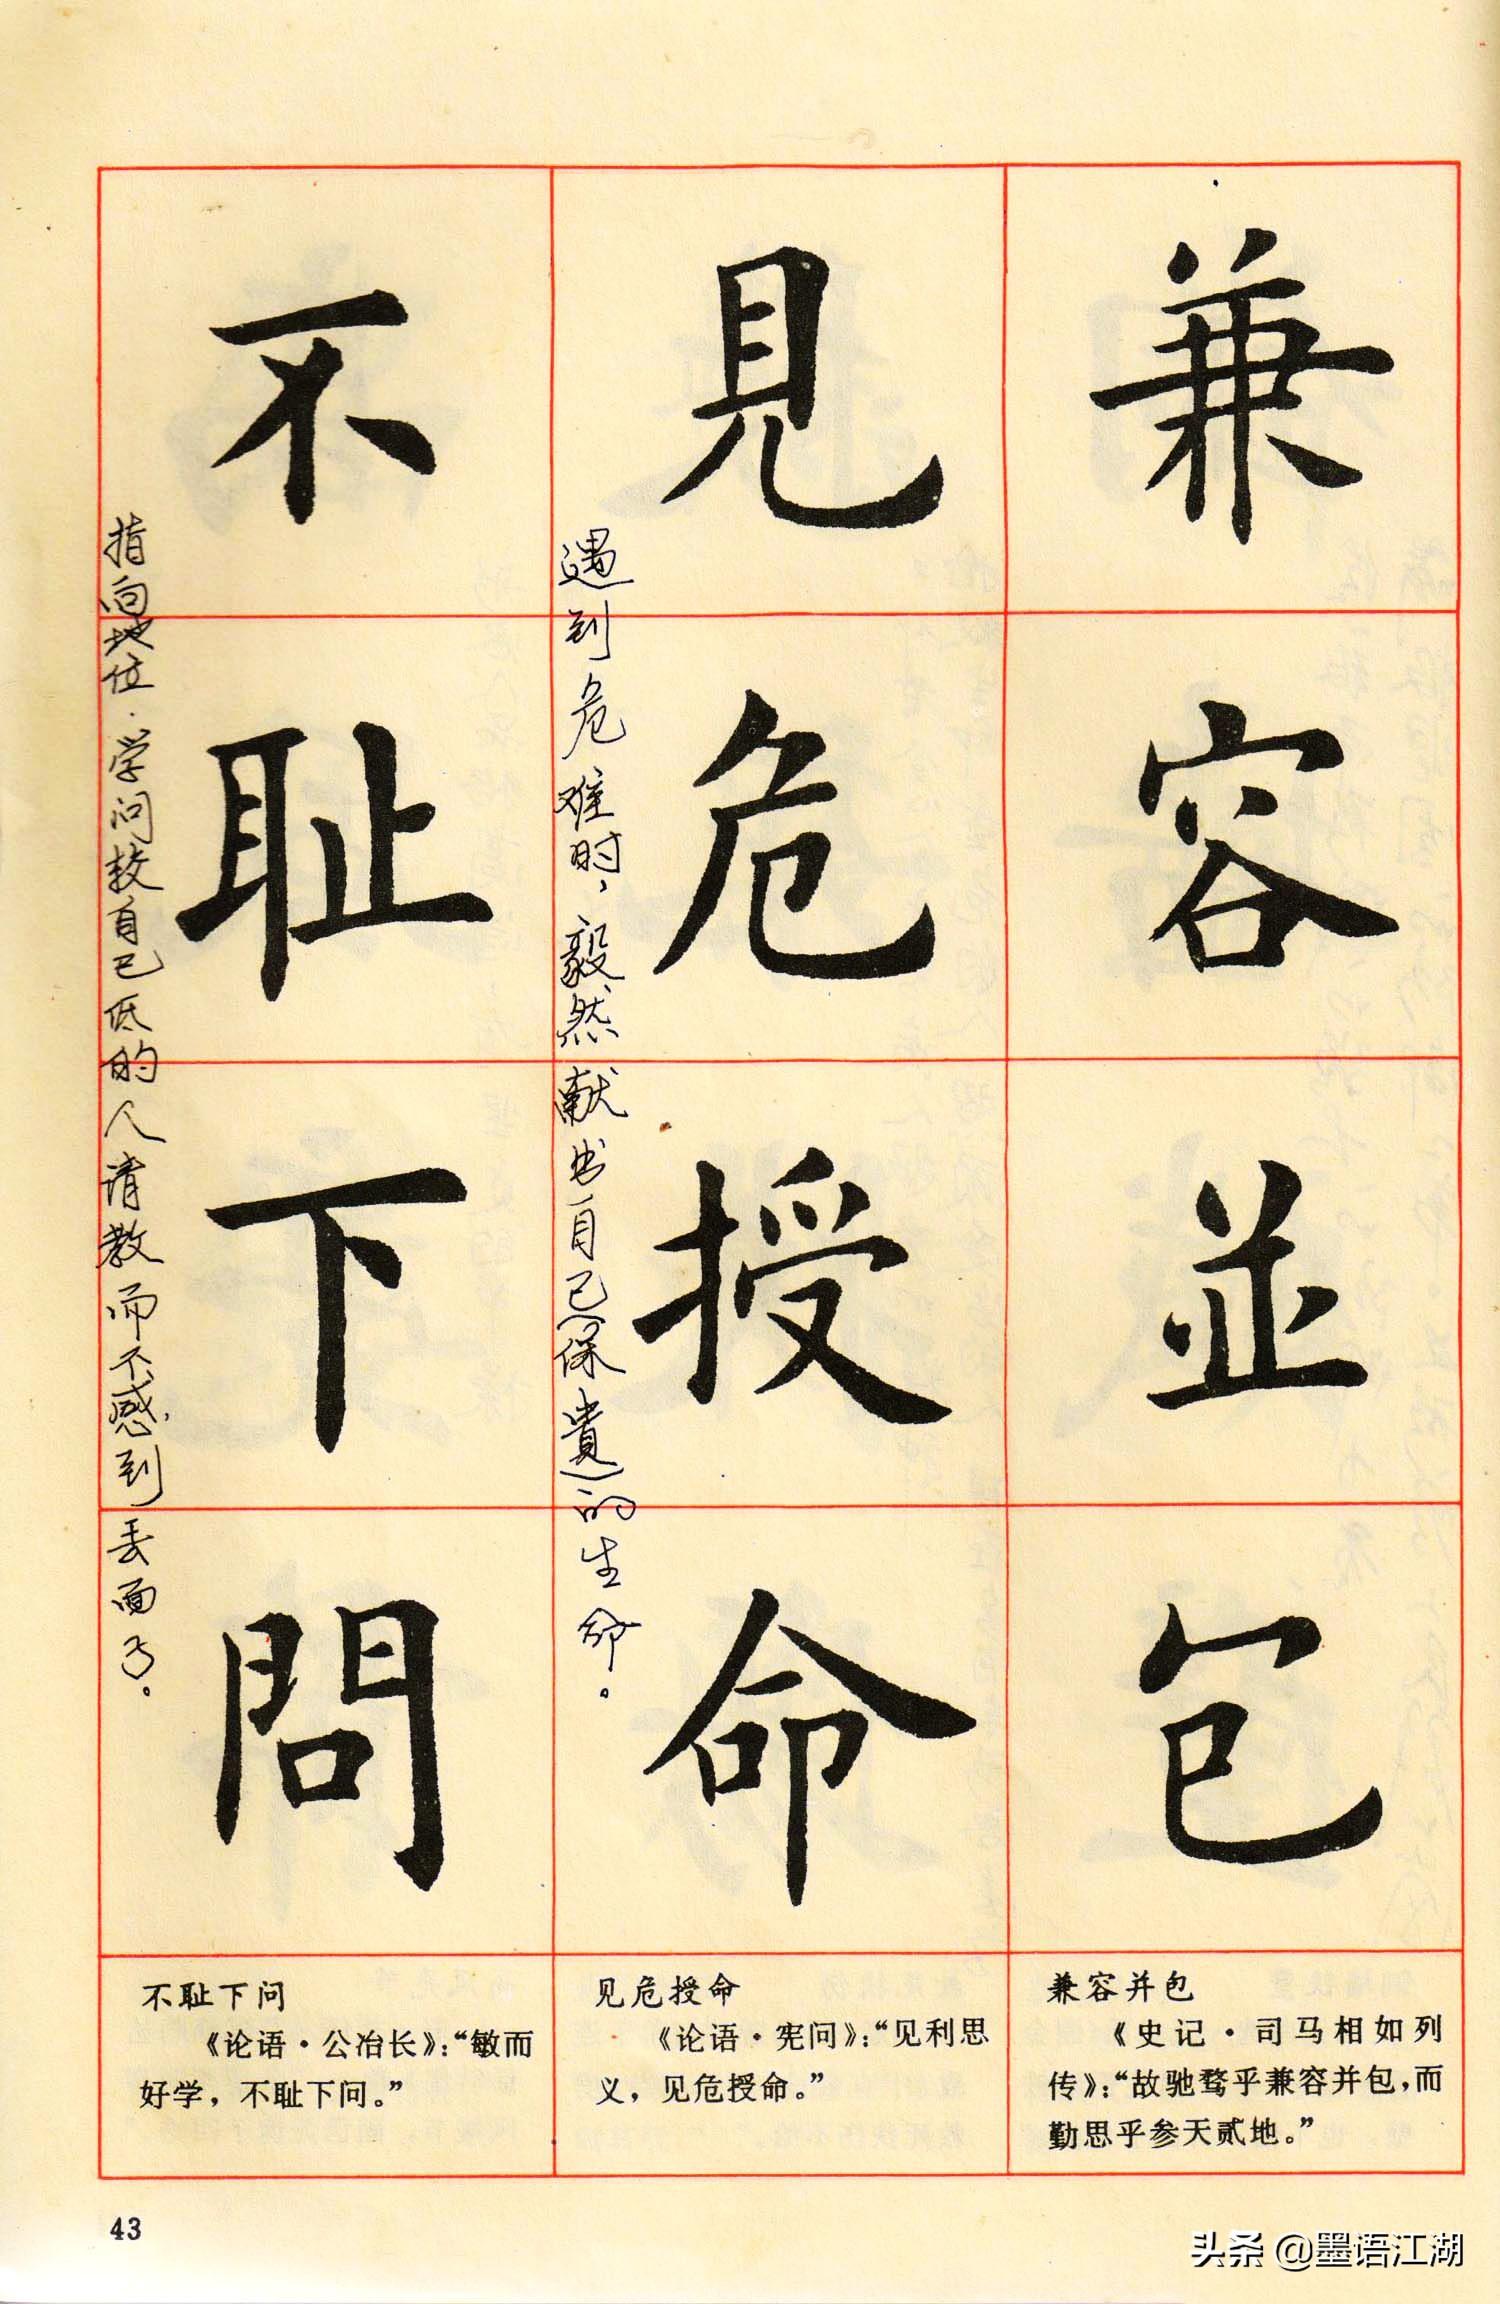 兼容並包
見危授命
遇到危难时，毅然献出自己(保貴)的生命。
不耻下問
指向地位．学问较自己低的人请教而不感到丢面子。
兼容并包
《史记·司马相如列
传》：“故驰骛乎兼容并包，而
勤思乎参天贰地。”
见危授命
《论语·宪问》：“见利思
义，见危授命。”
不耻下问
《论语·公冶长》：“敏而
好学，不耻下问。”
43
头条 @墨语江湖